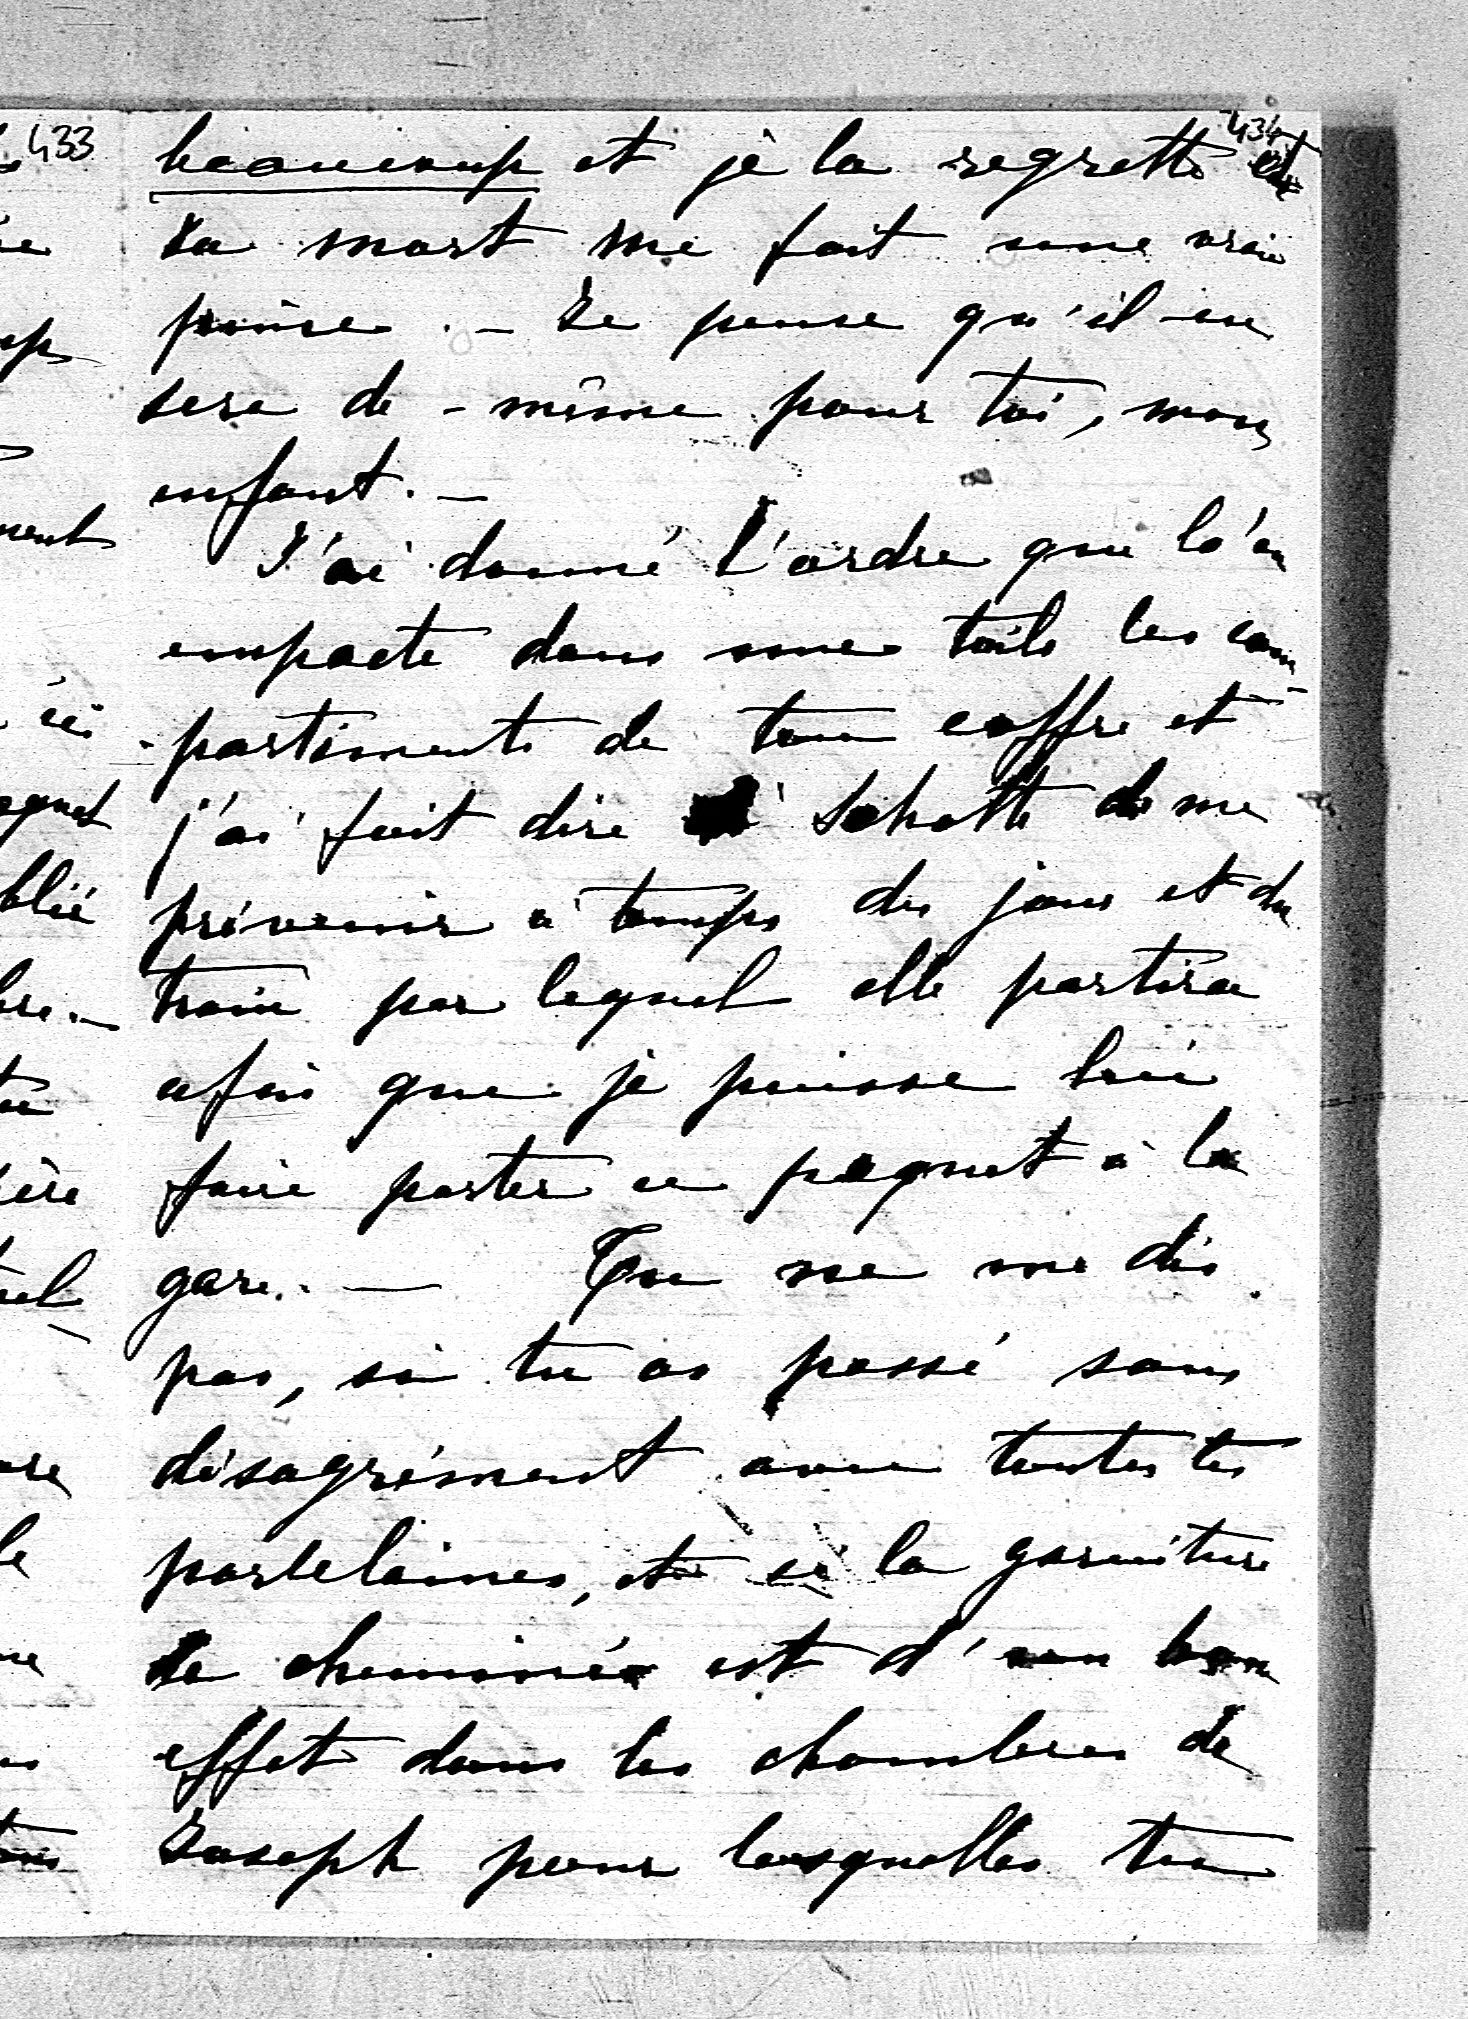 433
434
beaucoup et je la regrette et
sa mort me fait une vraie
peine. - Je pense qu'il en
sera de-même pour toi, mon
enfant. -
J'ai donné l'ordre que l'on
empacte dans une toile les com-
partiments de ton coffre et
j'ai fait dire à Schotte de me
prévenir à temps du jour et du
train par lequel elle partira
afin que je puisse lui
faire porter ce paquet à la
gare. - Tu ne me dis
pas, si tu as passé sans
désagrément avec toutes tes
porcelaines, et si la garniture
de cheminée est d'un bon
effet dans les chambres de
Joseph pour lesquelles tu